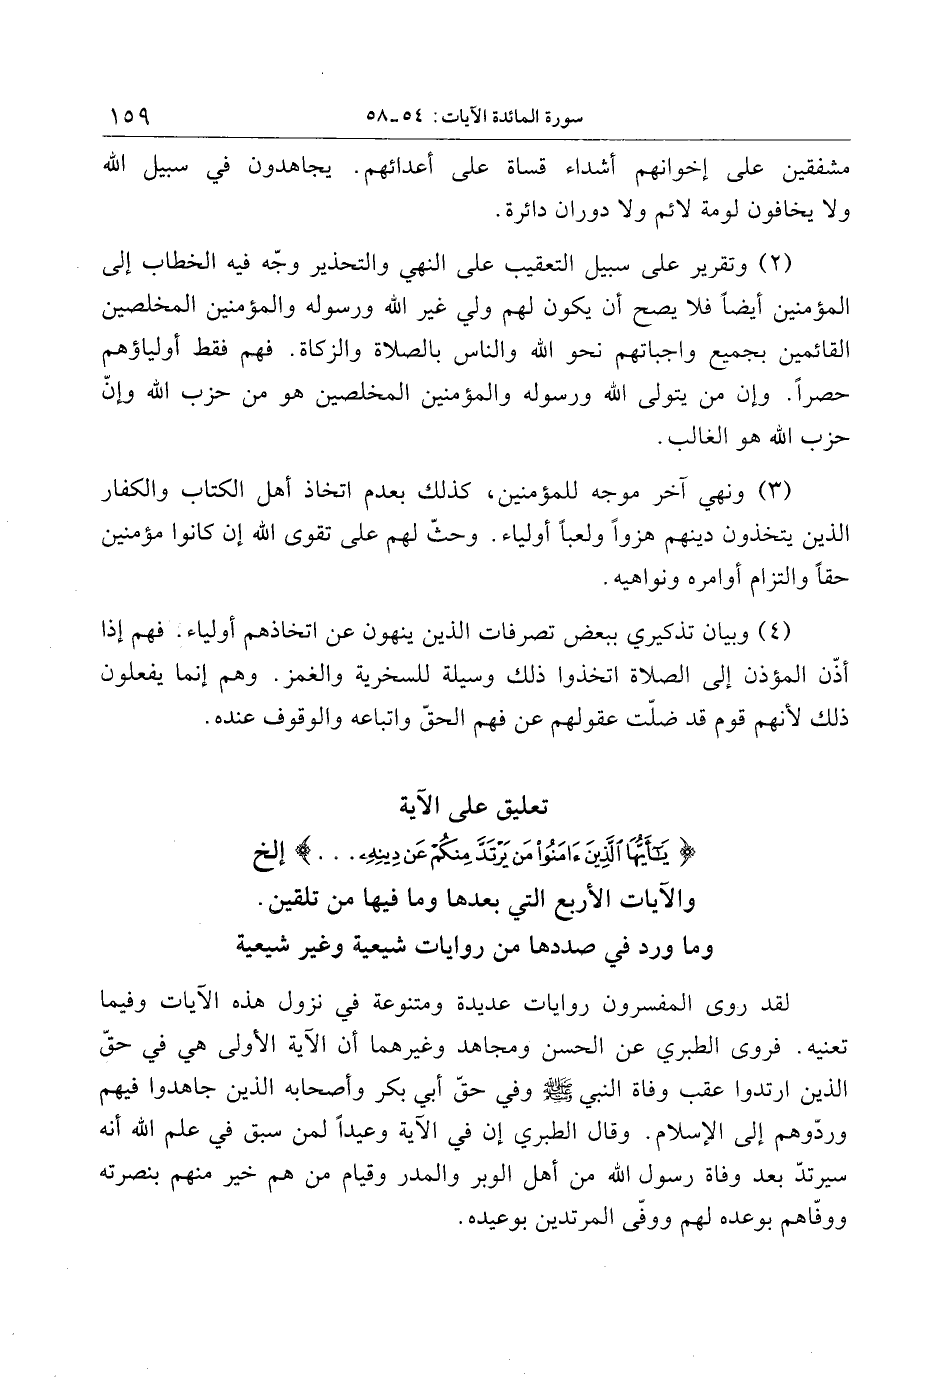 سورة المائدة الآيات: ٥٤-٥٨ ١٥٩
مشفقين على إخوانهم أشداء قساة على أعدائهم. يجاهدون في سبيل الله
ولا يخافون لومة لائم ولا دوران دائرة.
(٢) وتقرير على سبيل التعقيب على النهي والتحذير وجّه فيه الخطاب إلى
المؤمنين أيضاً فلا يصح أن يكون لهم ولي غير الله ورسوله والمؤمنين المخلصين
القائمين بجميع واجباتهم نحو الله والناس بالصلاة والزكاة. فهم فقط أولياؤهم
حصراً. وإن من يتولى الله ورسوله والمؤمنين المخلصين هو من حزب الله وإنّ
حزب الله هو الغالب.
(٣) ونهي آخر موجه للمؤمنين، كذلك بعدم اتخاذ أهل الكتاب والكفار
الذين يتخذون دينهم هزواً ولعباً أولياء. وحثّ لهم على تقوى الله إن كانوا مؤمنين
حقاً والتزام أوامره ونواهيه.
(٤) وبيان تذكيري ببعض تصرفات الذين ينهون عن اتخاذهم أولياء. فهم إذا
أذّن المؤذن إلى الصلاة اتخذوا ذلك وسيلة للسخرية والغمز. وهم إنما يفعلون
ذلك لأنهم قوم قد ضلّت عقولهم عن فهم الحقّ واتباعه والوقوف عنده.
تعليق على الآية
﴿ يَٰٓأَيُّهَا ٱلَّذِينَ ءَامَنُوا۟ مَن يَرْتَدَّ مِنكُمْ عَن دِينِهِۦ. . . . ﴾ إلخ
والآيات الأربع التي بعدها وما فيها من تلقين.
وما ورد في صددها من روايات شيعية وغير شيعية
لقد روى المفسرون روايات عديدة ومتنوعة في نزول هذه الآيات وفيما
تعنيه. فروى الطبري عن الحسن ومجاهد وغيرهما أن الآية الأولى هي في حقّ
الذين ارتدوا عقب وفاة النبي ﷺ وفي حقّ أبي بكر وأصحابه الذين جاهدوا فيهم
وردّوهم إلى الإسلام. وقال الطبري إن في الآية وعيداً لمن سبق في علم الله أنه
سيرتدّ بعد وفاة رسول الله من أهل الوبر والمدر وقيام من هم خير منهم بنصرته
ووفّاهم بوعده لهم ووفّى المرتدين بوعيده.